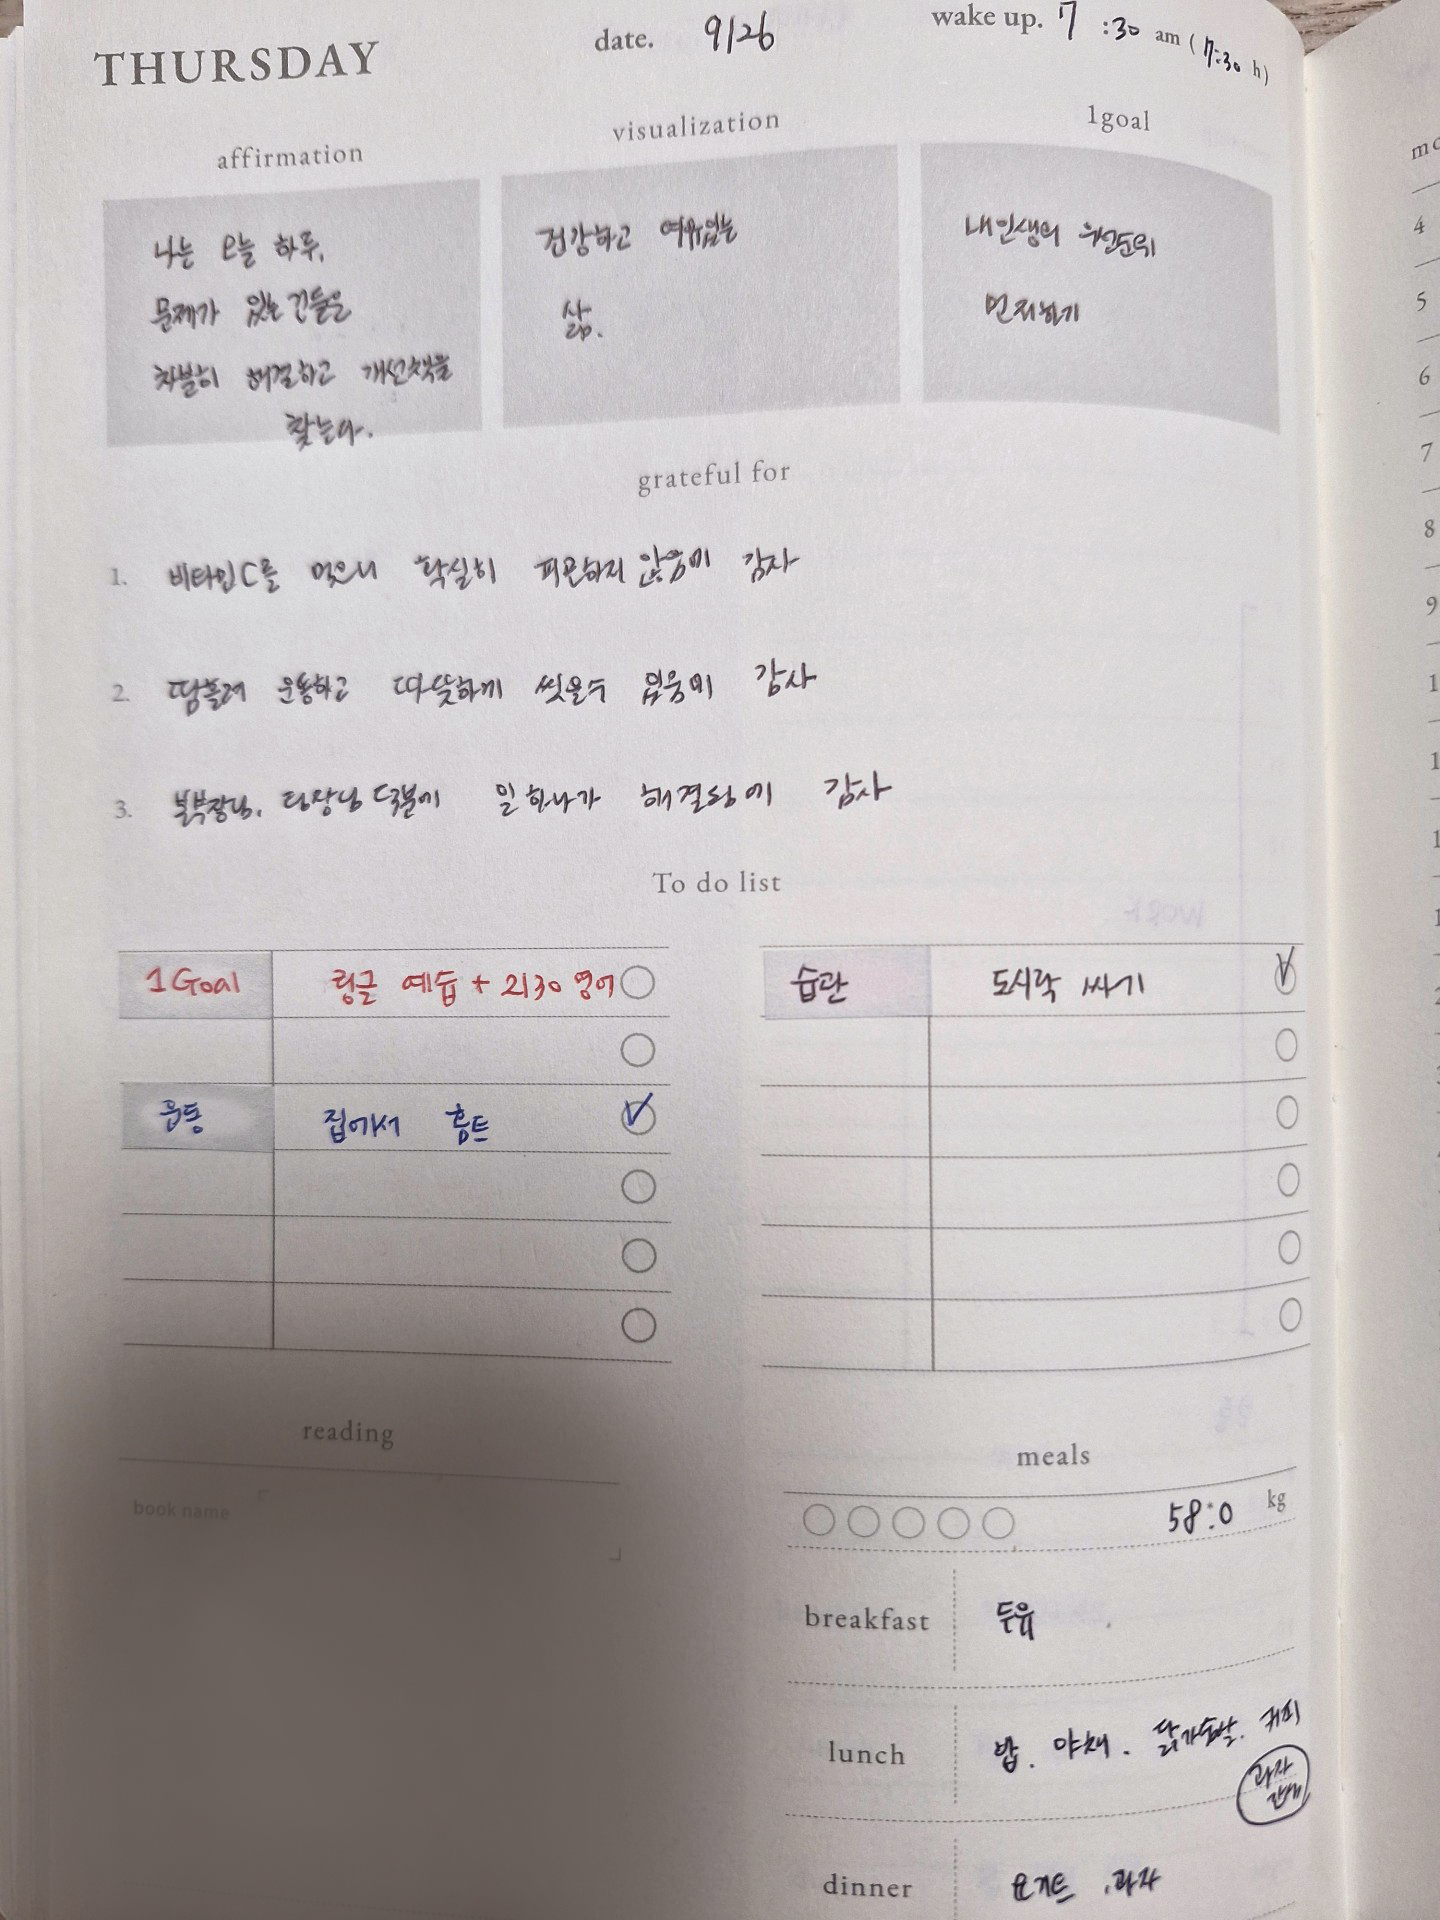 THURSDAY
date. 9/26
wake up. 7:30 am (7:30 h)
affirmation
나는 오늘 하루,
문제가 있는 건들은
차분히 해결하고 개선책을
찾는다.
visualization
건강하고 여유있는
삶.
1goal
내 인생의 우선순위
먼저하기
grateful for
1. 비타민C를 먹으니 확실히 피곤하지 않음에 감사
2. 땀흘려 운동하고 따뜻하게 씻을수 있음에 감사
3. 본부장님, 팀장님 덕분에 일 하나가 해결됨에 감사
To do list
1 Goal 링글 예습 + 2130 영어
운동 집에서 홈트
습관 도시락 싸기
reading
book name
meals
58.0 kg
breakfast 두유
lunch 밥. 야채. 닭가슴살. 커피
과자
dinner 요거트, 과자
mo
4
5
6
7
8
9